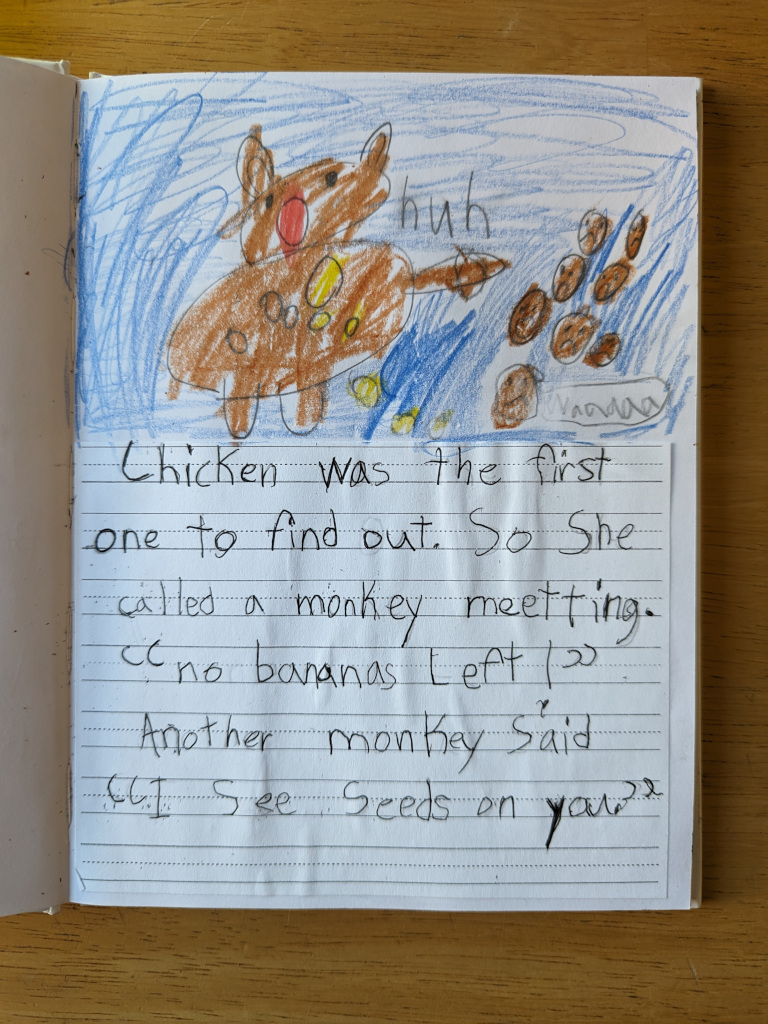 huh
waaaaa
Chicken was the first
one to find out. So She
called a monkey meetting.
"no bananas Left !"
Another monkey Said
"I See Seeds on you"